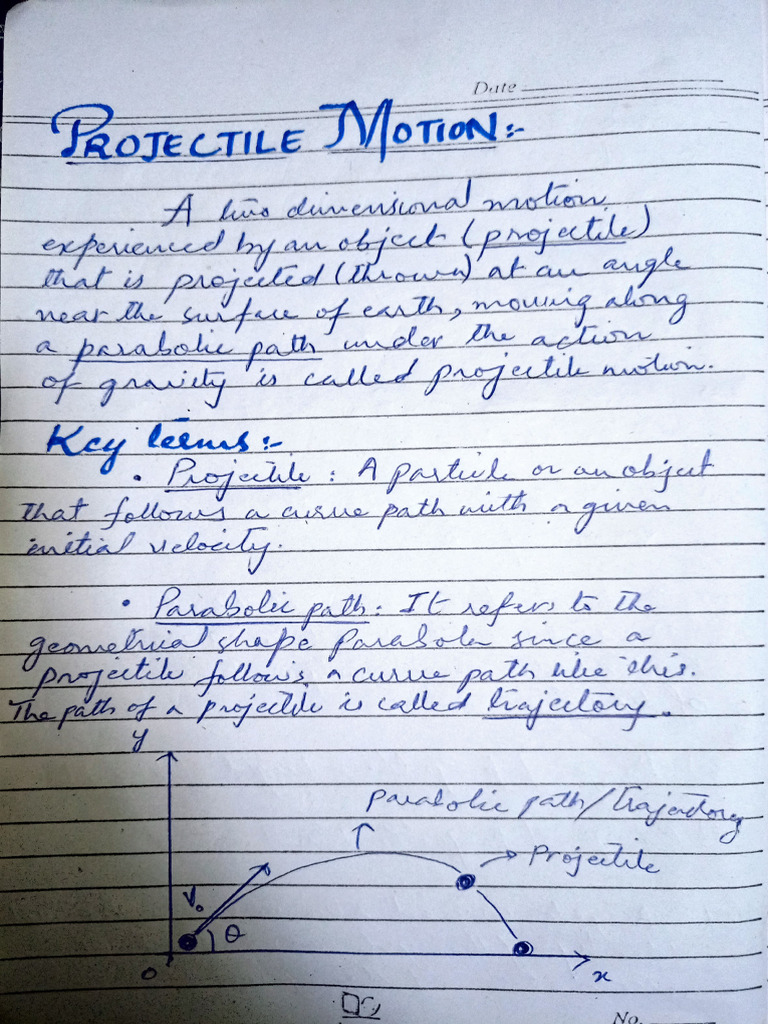 Date
PROJECTILE MOTION:-
A two dimensional motion
experienced by an object (projectile)
that is projected (thrown) at an angle
near the surface of earth, moving along
a parabolic path under the action
of gravity is called projectile motion.
Key terms:-
• Projectile : A particle or an object
that follows a curve path with a given
initial velocity.
• Parabolic path: It refers to the
geometrical shape parabola since a
projectile follows a curve path like this.
The path of a projectile is called trajectory.
y
Parabolic path/Trajectory
→ Projectile
V₀
θ
o
x
No.